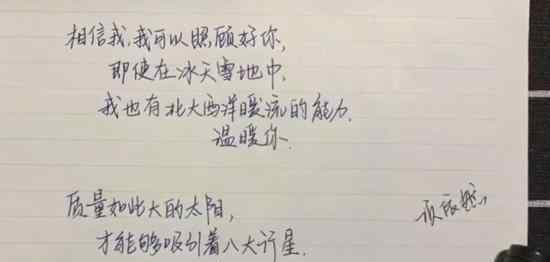 相信我,我可以照顾好你,
即使在冰天雪地中,
我也有北大西洋暖流的能力,
温暖你.
质量如此大的太阳,
才能够吸引着八大行星.